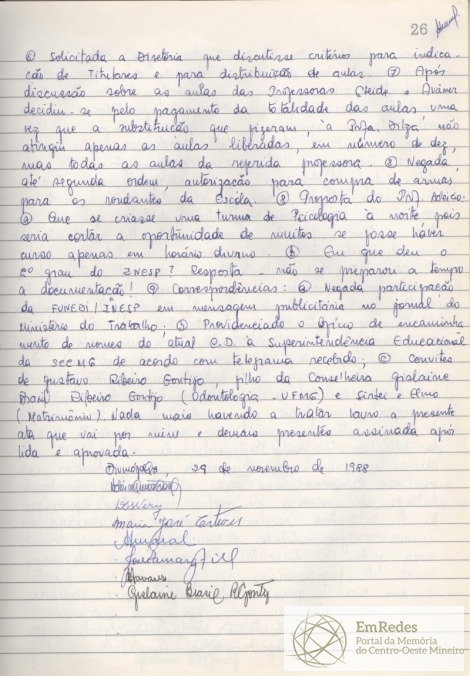 26
⑥ Solicitada a Diretoria que discutisse critérios para indica-
ção de Titulares e para distribuição de aulas. ⑦ Após
discussão sobre as aulas das Professoras Cleide e
decidiu-se pelo pagamento da totalidade das aulas uma
vez que a substituição que fizeram, à Profa. Dilza, não
atingiu apenas as aulas liberadas, em número de dez,
mas todas as aulas da referida professora. ⑧ Negada,
até segunda ordem, autorização para compra de armas
para os rondantes da Escola. ⑧ Proposta do Prof.
ⓐ Que se criasse uma turma de Psicologia à noite, pois
seria cortar a oportunidade de muitos se fosse haver
curso apenas em horário diurno. ⓑ Em que deu o
2º grau do INESP? Resposta - não se preparou a tempo
a documentação! ⑨ Correspondências: ⓐ Negada participação
da FUNEDI/INESP em mensagem publicitária no jornal do
Ministério do Trabalho; ⓑ Providenciado o ofício de encaminha
mento de nomes do atual C.D. à Superintendência Educacional
da SEEMG de acordo com telegrama recebido; ⓒ Convites
de Gustavo Ribeiro Gontijo, filho da Conselheira Gislaine
Brasil Ribeiro Gontijo (Odontologia - UFMG) e e
(Matrimônio). Nada mais havendo a tratar lavro a presente
ata que vai por mim e demais presentes assinada após
lida e aprovada.
Divinópolis, 29 de novembro de 1988
Maria José
Gislaine Brasil R Gontij
EmRedes
Portal da Memória
do Centro-Oeste Mineiro